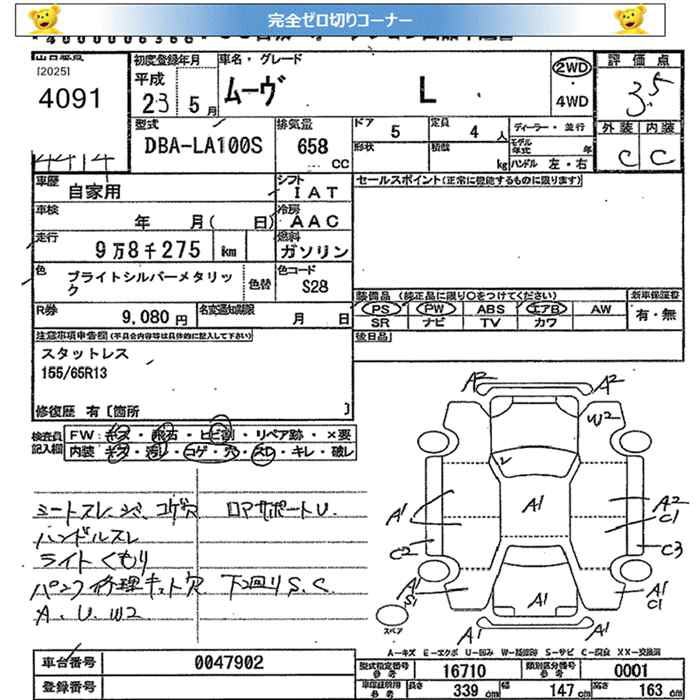 完全ゼロ切りコーナー
[2025]
4091
4414
初度登録年月
平成
23 5月
車名・グレード
ムーヴ L
2WD
・
4WD
評価点
3.5
外装 内装
C C
型式
DBA-LA100S
排気量
658
CC
ドア 5
定員 4 人
形状
積載 kg
ディーラー・並行
モデル年式 年
ハンドル 左・右
車歴
自家用
シフト
IAT
車検
年 月( 日)
冷房
AAC
走行
9万8千275 km
燃料
ガソリン
色
ブライトシルバーメタリッ
ク
色替
色コード
S28
R券
9,080円
名変通知期限
月 日
セールスポイント(正常に機能するものに限ります)
装備品 (純正品に限り○をつけてください)
新車保証書
PS PW ABS エアB AW
有・無
SR ナビ TV カワ
後日品
注意事項申告欄(不具合内容等は具体的に記入して下さい)
スタットレス
155/65R13
修復歴 有 [箇所 ]
検査員
記入欄
FW:キズ・飛石・ヒビ割・リペア跡・×要
内装:キズ・汚レ・コゲ・穴・スレ・キレ・破レ
シートスレ、コゲ穴 ロアサポートU.
ハンドルスレ
ライトくもり
パンク修理キット穴 下回りS.C.
A.U.W2
A2 A2
W2
A1
A1
A2
C1
C2
C3
A1
S1
A1
A1
C1
A1
スペア
A-キズ E-エクボ U-凹み W-補修跡 S-サビ C-腐食 XX-交換済
車台番号
0047902
登録番号
型式指定番号
参考
16710
類別区分番号
参考
0001
車検証数用
参考
長さ 339 cm
幅 147 cm
高さ 163 cm